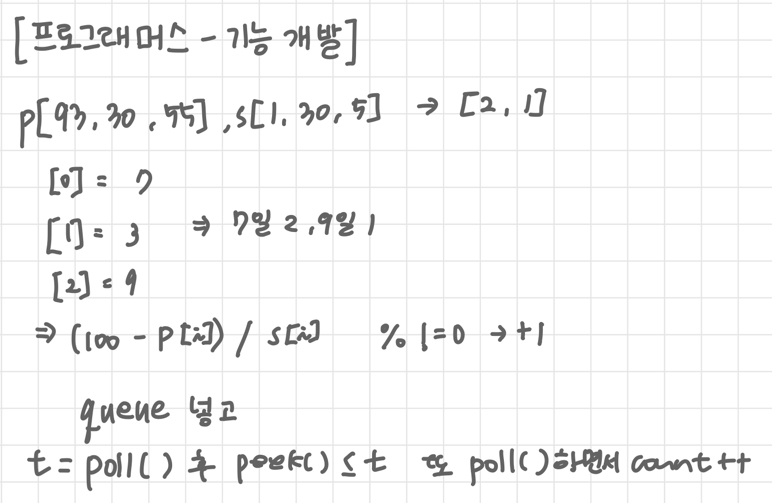 [프로그래머스 - 기능 개발]
p[93, 30, 55], s[1, 30, 5] → [2, 1]
[0] = 7
[1] = 3 ⇒ 7일 2, 9일 1
[2] = 9
⇒ (100 - p[i]) / s[i] % != 0 → +1
queue 넣고
t = poll() 후 peek() ≤ t 또 poll()하면서 count++